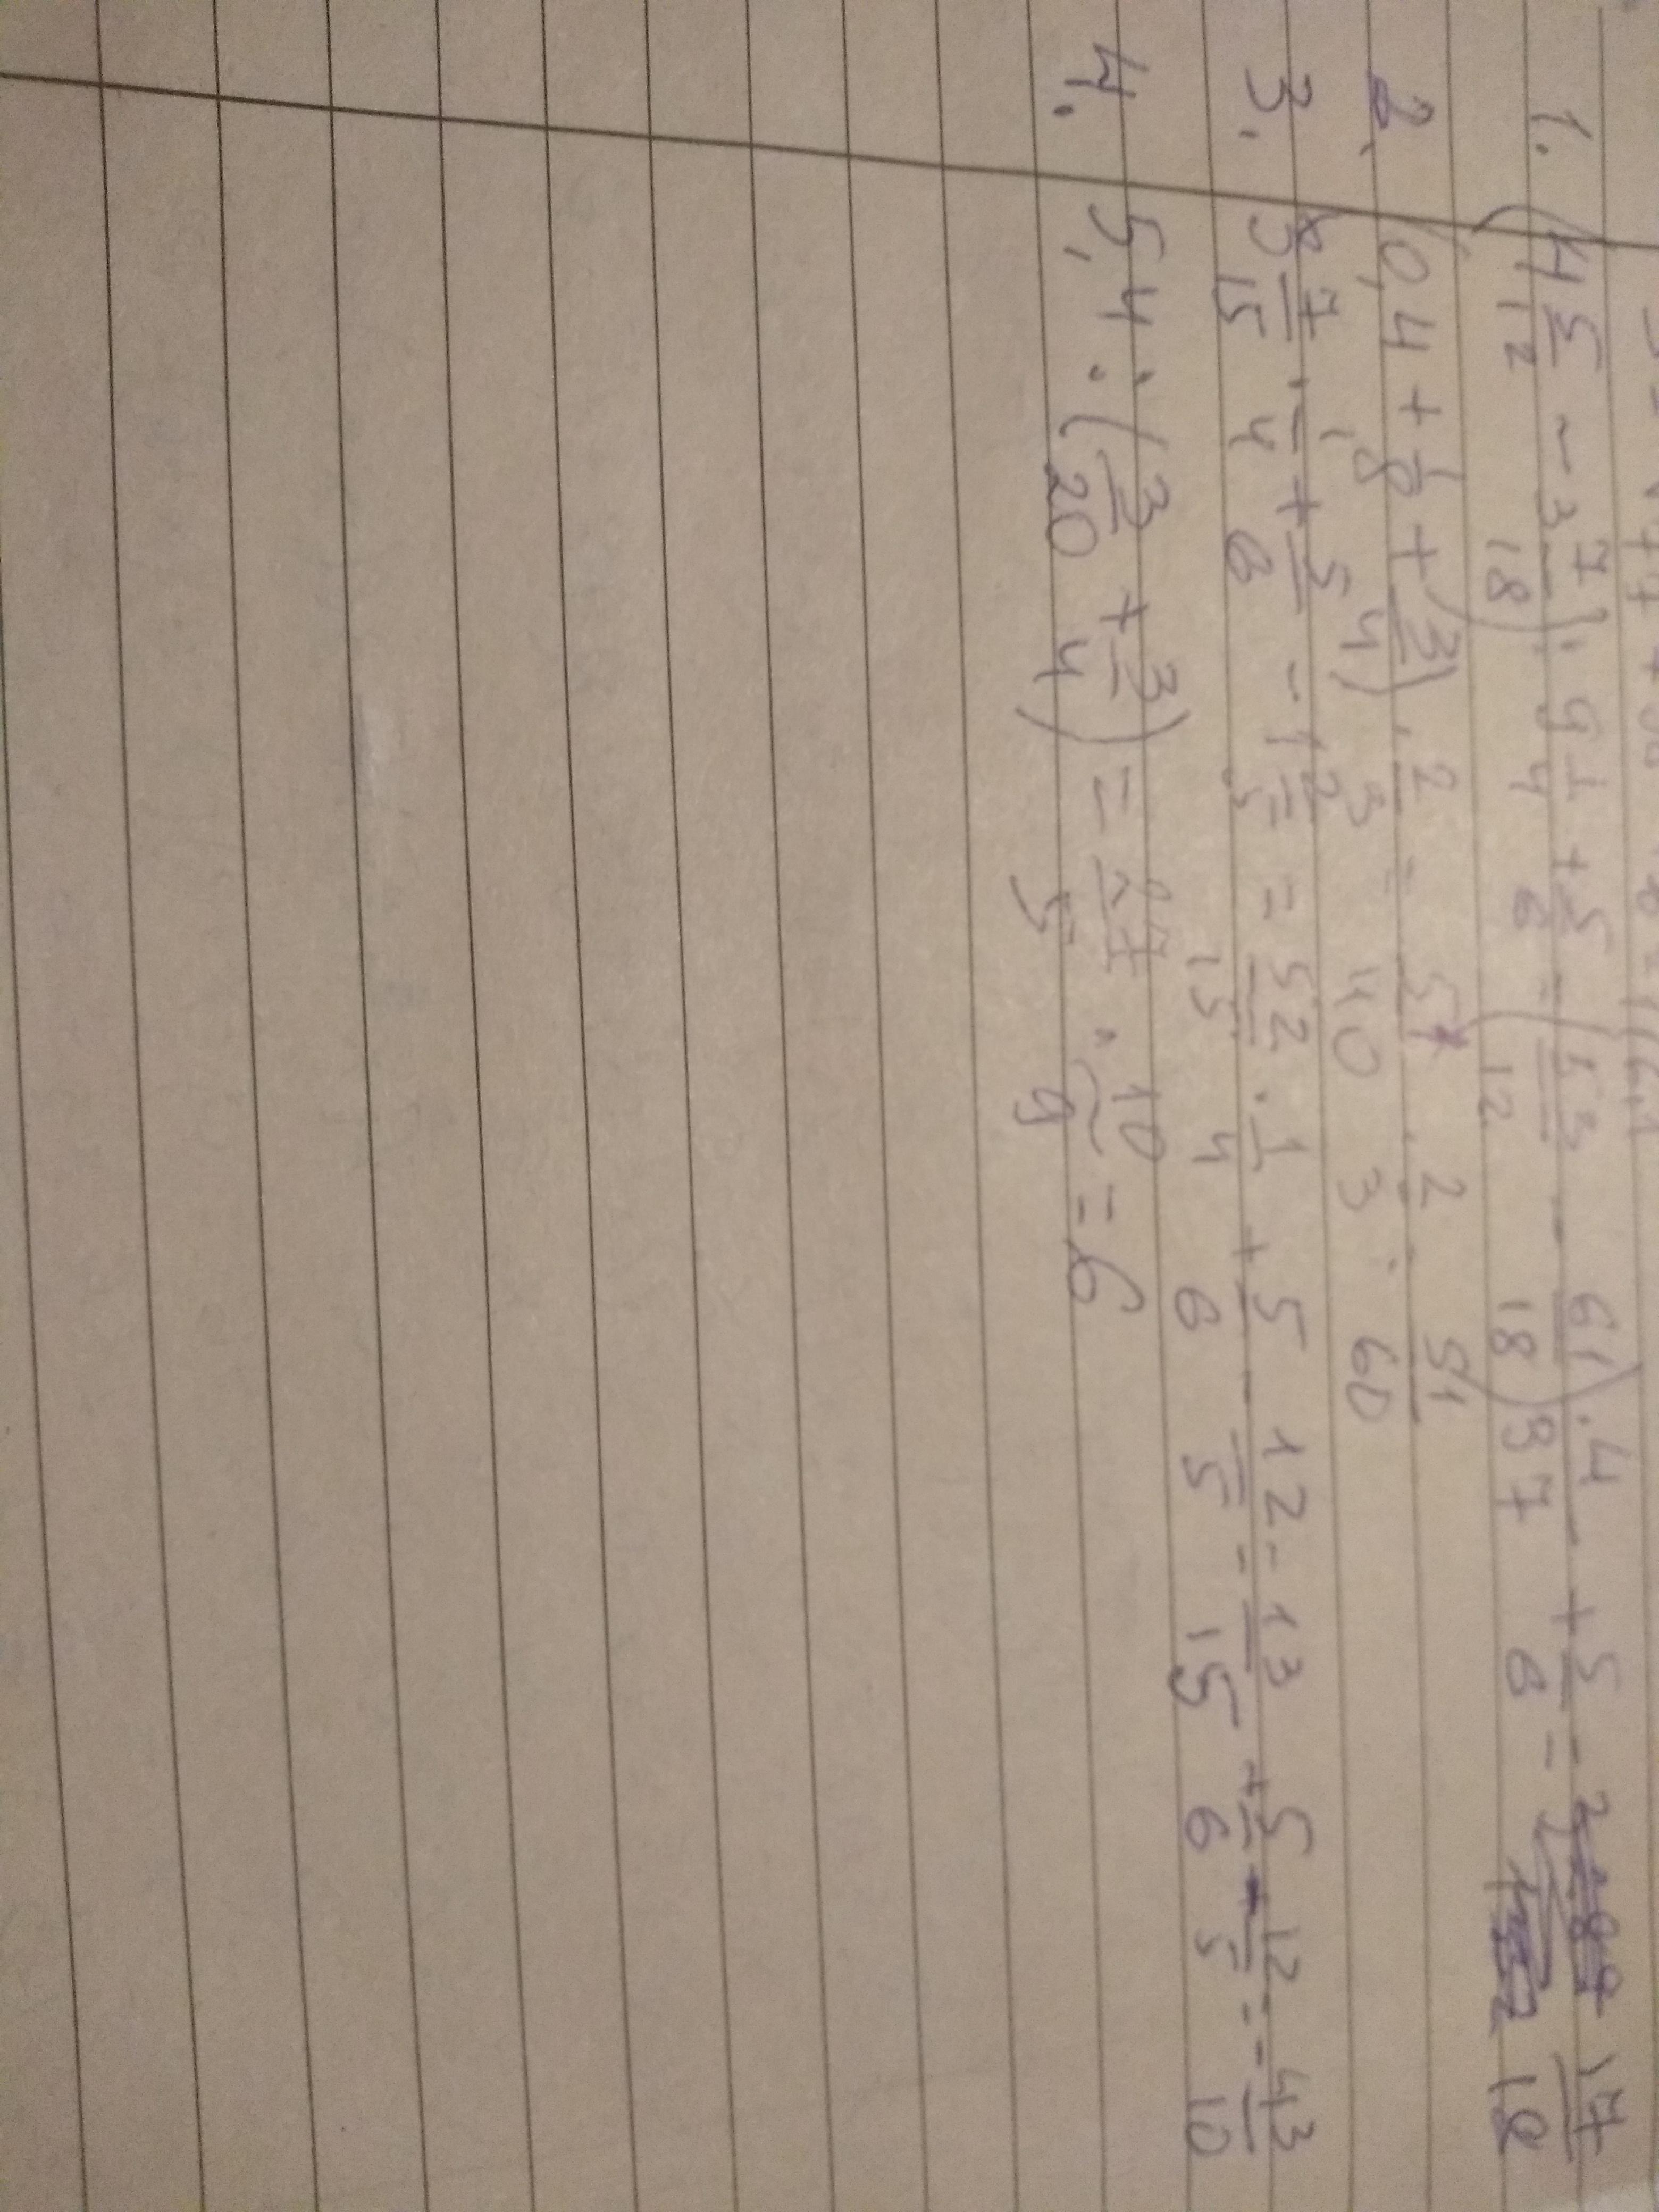 1. (4 5/12 - 3 7/18) : 9 1/4 + 5/6 = (53/12 - 61/18) · 4/37 + 5/6 = 17/18
2. (0,4 + 1/8 + 3/4) · 2/3 = 51/40 · 2/3 = 51/60
3. 3 7/15 · 1/4 + 5/6 - 1 2/5 = 52/15 · 1/4 + 5/6 - 12/5 = 13/15 + 5/6 - 12/5 = - 43/10
4. 5,4 : (3/20 + 3/4) = 27/5 · 10/9 = 6